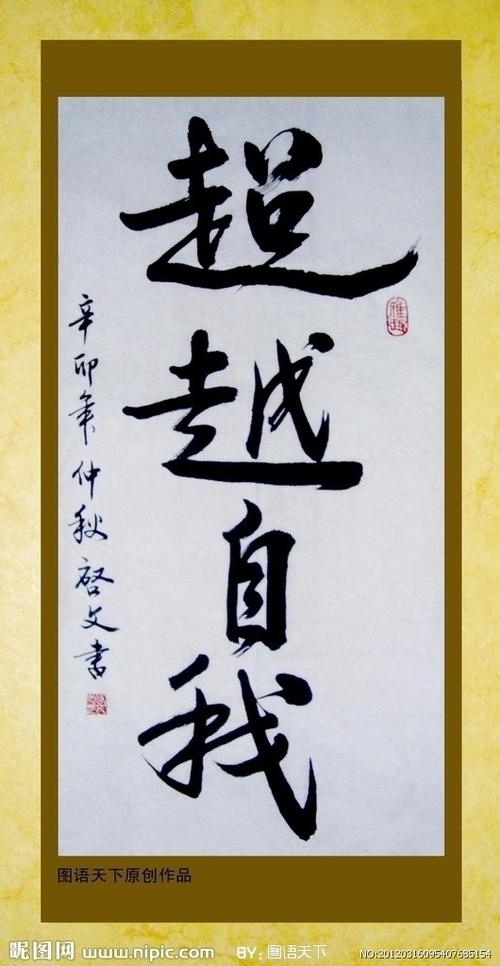 超越自我
辛卯年仲秋啓文書
图语天下原创作品
昵图网 www.nipic.com
BY: 图语天下
NO:20120316095407685154